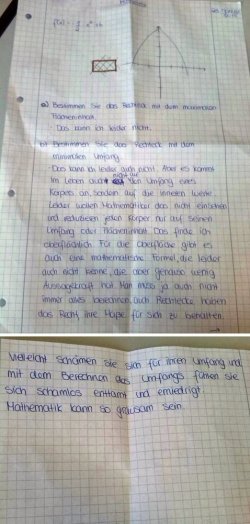 a) Bestimmen Sie das Rechteck mit dem maximalen
Flächeninhalt.
- Das kann ich leider nicht.
b) Bestimmen Sie das Rechteck mit dem
minimalen Umfang.
- Das kann ich leider auch nicht. Aber es kommt
im Leben auch nicht auf den Umfang eines
Körpers an, sondern auf die inneren Werte.
Leider wollen Mathematiker das nicht einsehen
und reduzieren jeden Körper nur auf seinen
Umfang oder Flächeninhalt. Das finde ich
oberflächlich. Für die Oberfläche gibt es
auch eine mathematische Formel, die ich leider
auch nicht kenne, die aber genauso wenig
Aussagekraft hat. Man muss ja auch nicht
immer alles berechnen, auch Rechtecke haben
das Recht, ihre Maße für sich zu behalten.
Vielleicht schämen sie sich für ihren Umfang und
mit dem Berechnen des Umfangs fühlen sie
sich schamlos enttarnt und erniedrigt.
Mathematik kann so grausam sein.